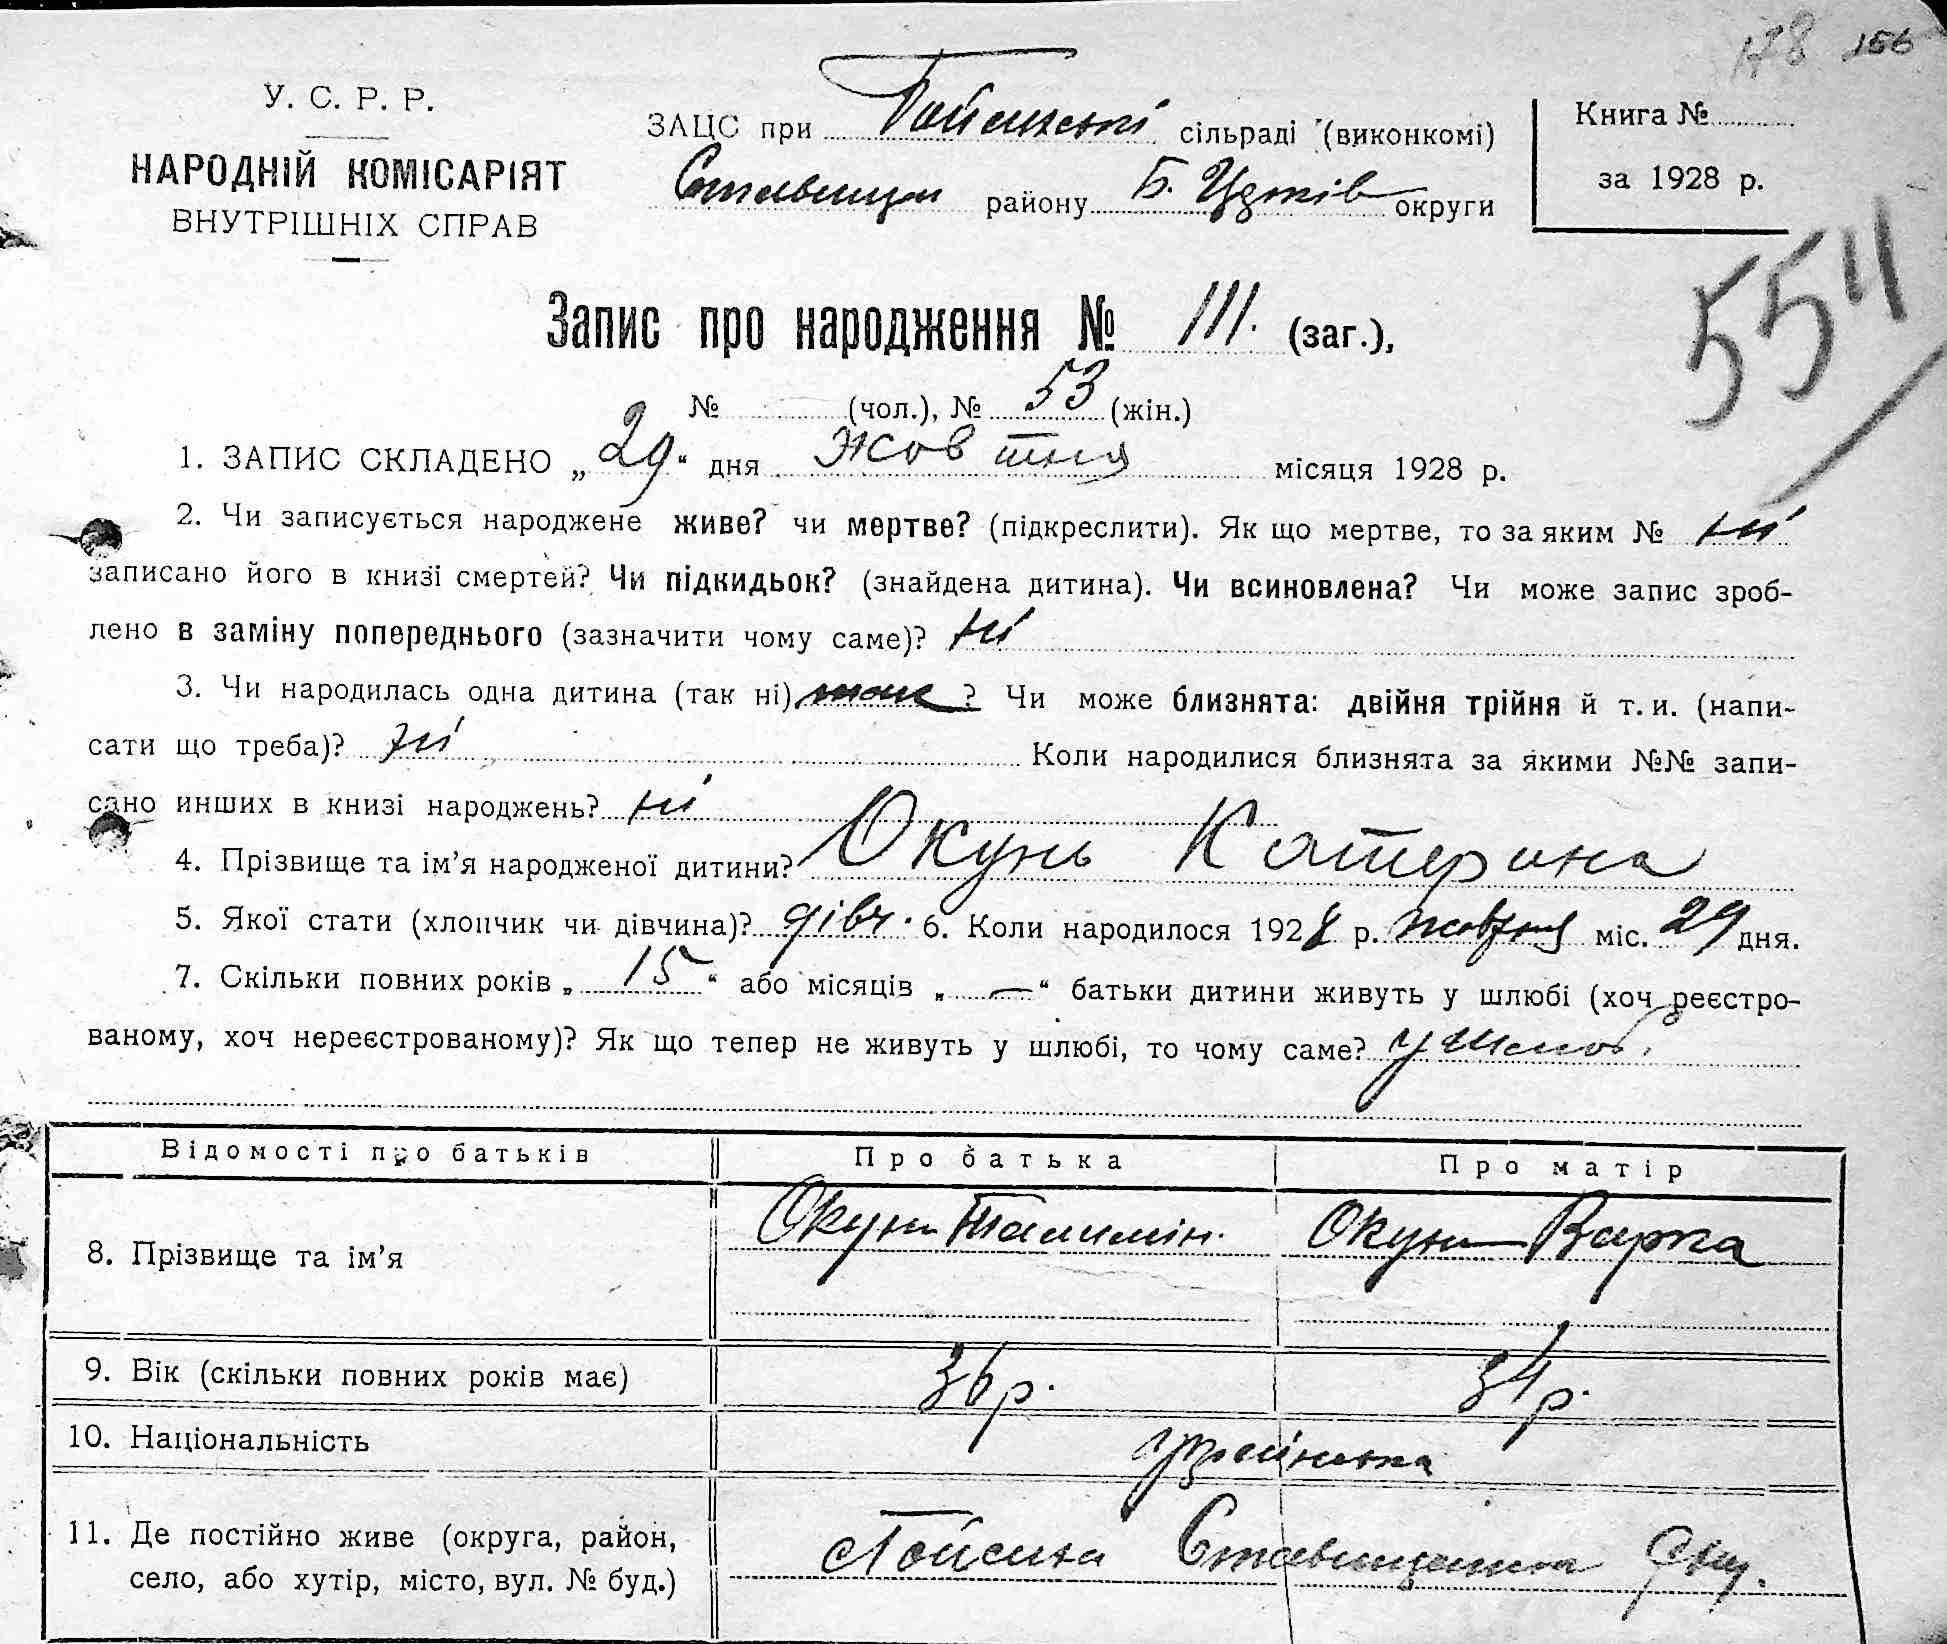 178 156
У. С. Р. Р.
НАРОДНІЙ КОМІСАРІЯТ
ВНУТРІШНІХ СПРАВ
ЗАЦС при сільраді (виконкомі)
району Б. Церків округи
Книга №
за 1928 р.
554
Запис про народження № 111. (заг.),
№ (чол.), № 53 (жін.)
1. ЗАПИС СКЛАДЕНО „29“ дня Жовтня місяця 1928 р.
2. Чи записується народжене живе? чи мертве? (підкреслити). Як що мертве, то за яким № ні
записано його в книзі смертей? Чи підкидьок? (знайдена дитина). Чи всиновлена? Чи може запис зроб-
лено в заміну попереднього (зазначити чому саме)? ні
3. Чи народилась одна дитина (так ні) так ? Чи може близнята: двійня трійня й т. и. (напи-
сати що треба)? ні Коли народилися близнята за якими №№ запи-
сано инших в книзі народжень? ні
4. Прізвище та ім’я народженої дитини? Окунь Катерина
5. Якої стати (хлопчик чи дівчина)? дівч. 6. Коли народилося 1928 р. жовтня міс. 29 дня.
7. Скільки повних років „ 15 “ або місяців „ — “ батьки дитини живуть у шлюбі (хоч реєстро-
ваному, хоч нереєстрованому)? Як що тепер не живуть у шлюбі, то чому саме? у шлюб.
Відомості про батьків Про батька Про матір
8. Прізвище та ім’я Окунь Окунь Варка
9. Вік (скільки повних років має) 36 р. 34 р.
10. Національність українська
11. Де постійно живе (округа, район,
село, або хутір, місто, вул. № буд.)